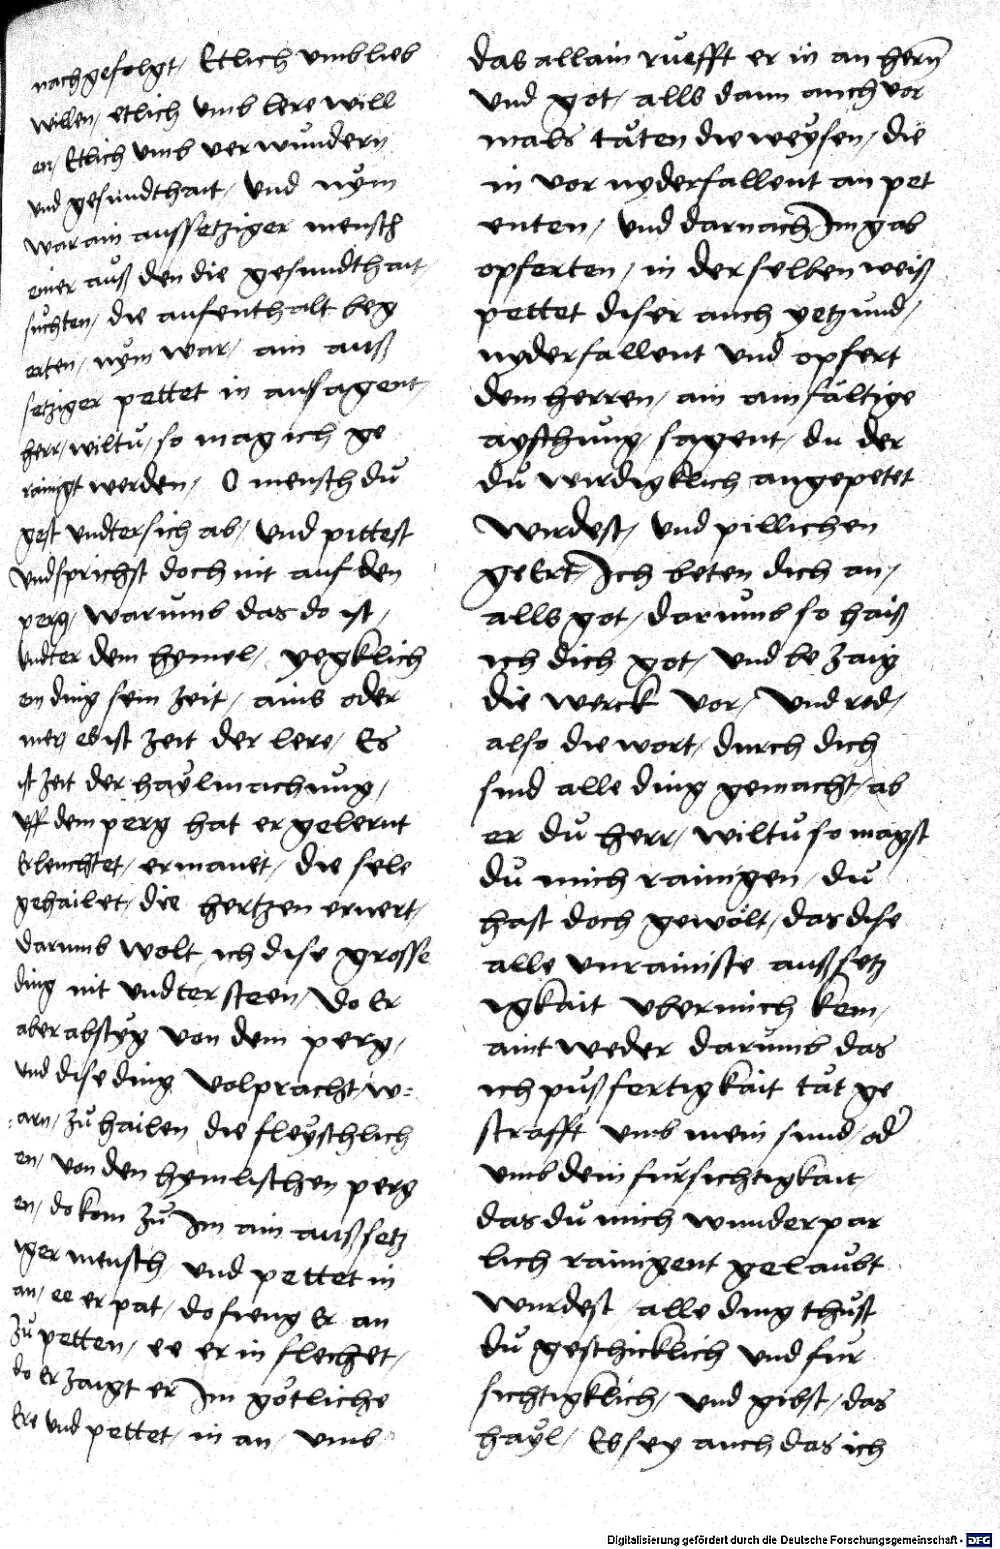 nachgefolgt, Etlich vmb lieb
willen, etlich vmb lere will
en, Etlich vmb verwundern
vnd gesundthait, vnd nym
war ain aussetziger mensch
einer auß den die gesundthait
suchten, die aufenthalt beg
erten, nym war, ain auß
setziger pettet in an sagent,
herr, wiltu, so mag ich ge
rainigt werden, O mensch du
gest vndtersich ab, vnd pittest
vnd sprichst doch nit auf den
perg, warumb das do ist,
vndter dem hymel, yegklich
en ding sein zeit, ains oder
mer, es ist zeit der lere, Es
ist zeit der haylmachung,
vff dem perg hat er gelernt
Erleuchtet, ermanet, die sele
gehailet, die hertzen ernert,
darumb wolt ich dise grosse
ding nit vndtersteen, Do Er
aber abstyg von dem perg,
vnd dise ding volpracht w=
arn, zu hailen die fleyschlich
en, von den hymlischen perg
en, do kom zu Im ain außsetz
iger mensch vnd pettet in
an, ee er pat, do fieng Er an
zu petten, ee er in flechet,
do Er zaigt er Im götliche
Ere vnd pettet, in an, vmb
das allain ruefft er in an hern
vnd got, alls dann auch vor
mals täten die weysen, die
in vor nyderfallent an pet
enten, vnd darnach Im gab
opferten, in der selben weiß
pettet diser auch yetzund,
nyderfallent vnd opfert
dem herren, ain ainfältige
ayschung, sagent, du der
du wirdigklich angepetet
wirdest, vnd pillichen
geErt, Ich beten dich an,
alls got, darumb so haiß
ich dich got, vnd bezaig
die werck vor, vnd red,
also die wort, durch dich
sind alle ding gemacht, ab
er du herr, wiltu so magst
du mich rainigen, du
hast doch gewölt, das dise
alle vnrainiste außsetz
igkait vber mich kem,
aintweder darumb das
ich pußfertigkait tät ge
strafft vmb mein sund, od
vmb dein fursichtigkait
das du mich wunderpar
lich rainigent gelaubt
wurdest, alle ding thust
du geschicklich vnd fur
sichtigklich, vnd gibst, das
hayl, Es sey auch das ich
Digitalisierung gefördert durch die Deutsche Forschungsgemeinschaft - DFG